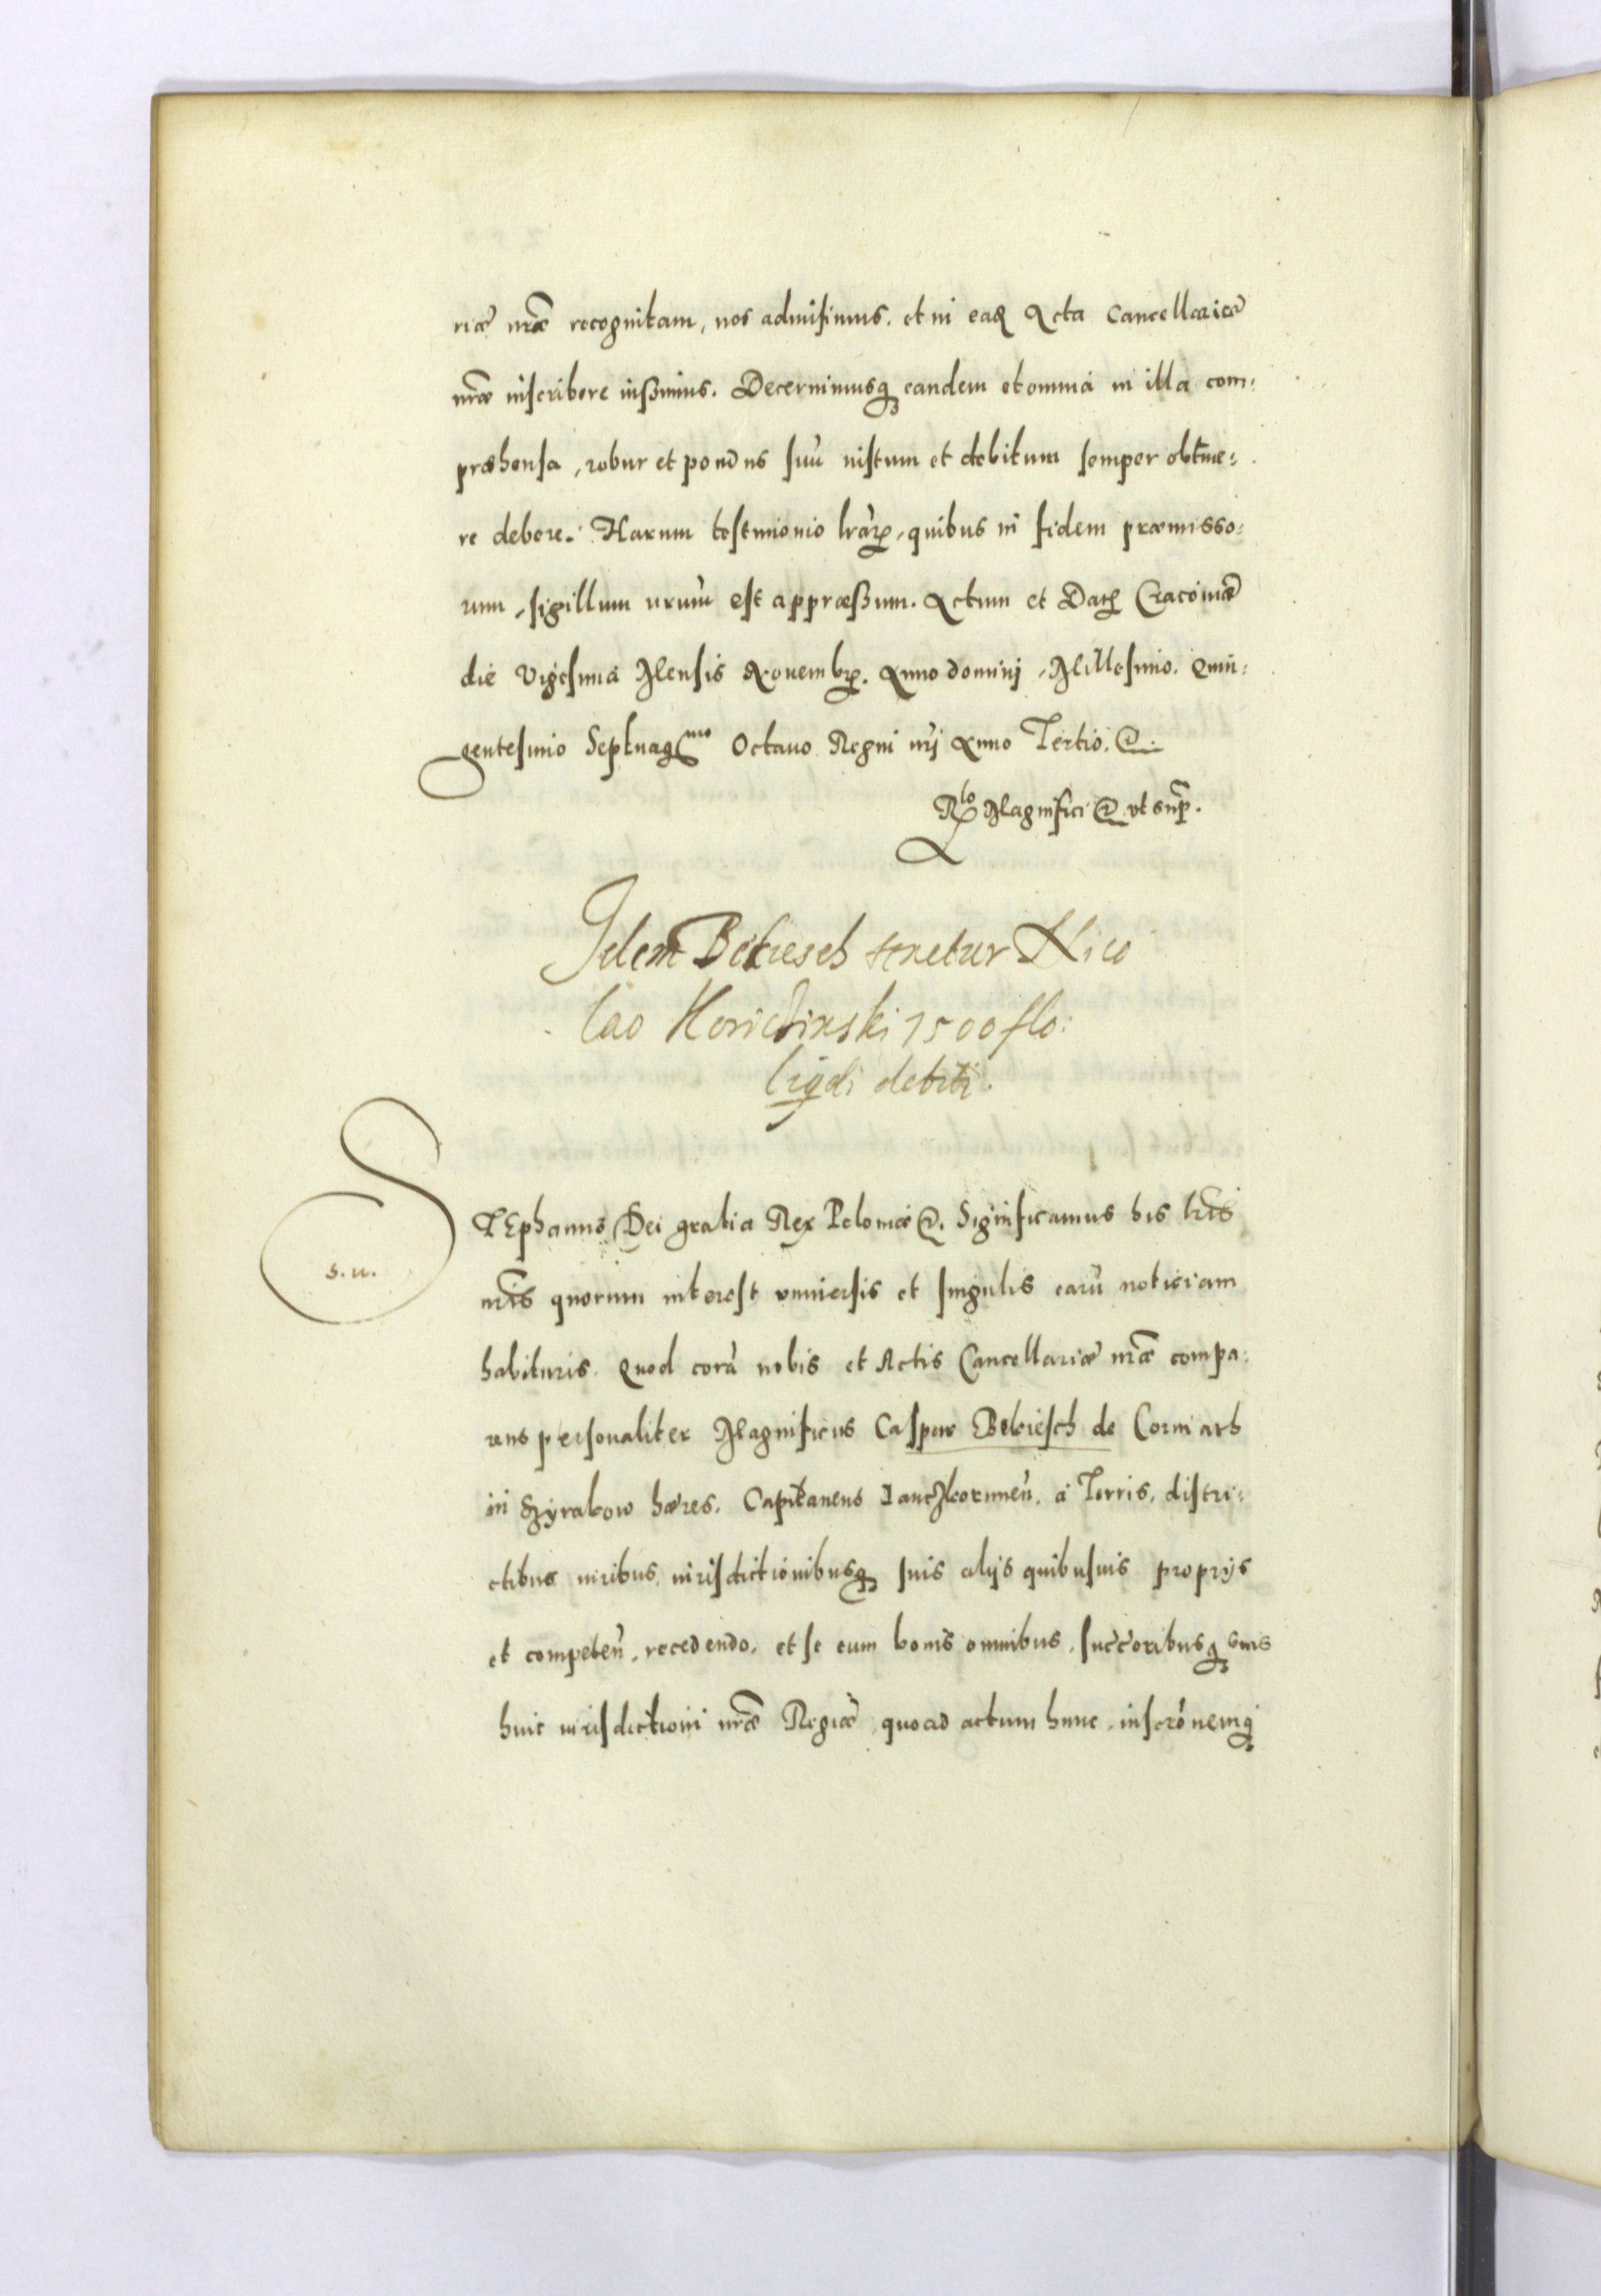 riæ nr̃æ recognitam, nos admisimus. et in eaq̃ Acta Cancellariæ
nr̃æ inscribere iussimus. Decernimusq́ eandem et omnia in illa com:
præhensa, robur et pondus suũ iustum et debitum semper obtine:
re debere. Harum testimonio lrãꝝ, quibus in fidem præmisso:
rum, sigillum nrum̃ est appræssum. Actum et Datꝝ Cracoviæ
die Vigesima Mensis Novembꝝ. Anno domini, Millesimo. Quin:
gentesimo Septuagmo Octavo Regni nrĩ Anno Tertio. &.
Rlo Magnifici & ut sup̃.
Idem Bekiesch tenetur Nico
lao Koricinski 1500 flo:
liqdi debiti.
STEphanus Dei gratia Rex Poloniæ &. Significamus his lrĩs
s. n.
nrĩs quorum interest universis et singulis earũ noticiam
habituris. Quod corã nobis et Actis Cancellariæ nr̃æ compa:
rens personaliter Magnificus Caspar Bekiesch de Corniath
in Szyrakow hæres. Capitaneus Lanczkoruneñ. a Terris, distri:
ctibus iuribus, iurisdictionibusq́ suis alijs quibusuis proprijs
et competeñ, recedendo. et se cum bonis omnibus, succẽoribusq́ suis
huic iurisdictioni nr̃æ Regiæ, quoad actum hunc, inscrõnemq́